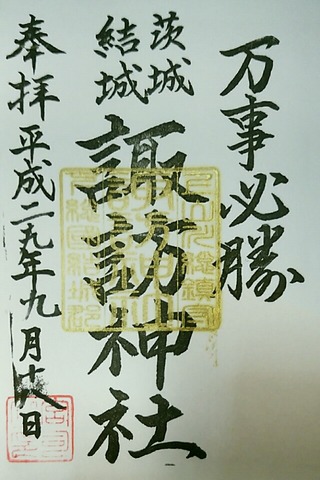 万事必勝
茨城
結城
諏訪神社
奉拝 平成二九年九月十八日